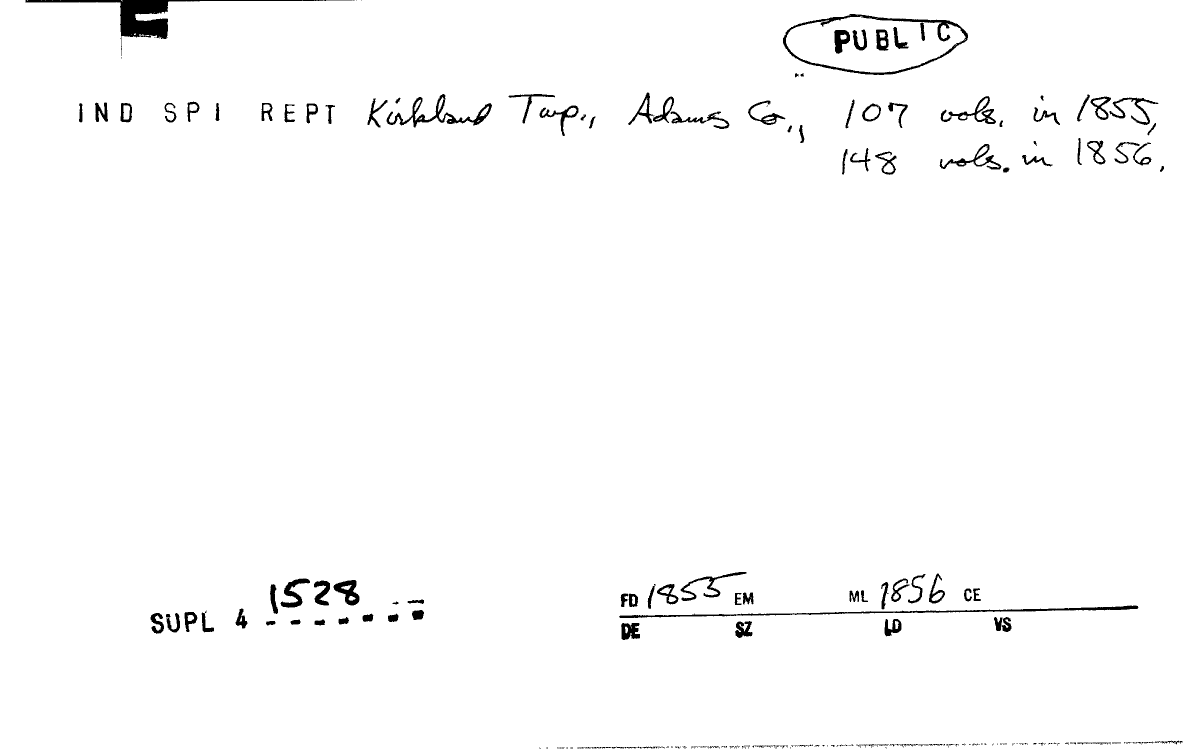 PUBLIC
IND SPI REPT Kirkland Twp., Adams Co., 107 vols. in 1855,
148 vols. in 1856.
SUPL 4 1528
FD 1855 EM ML 1856 CE
DE SZ LD VS